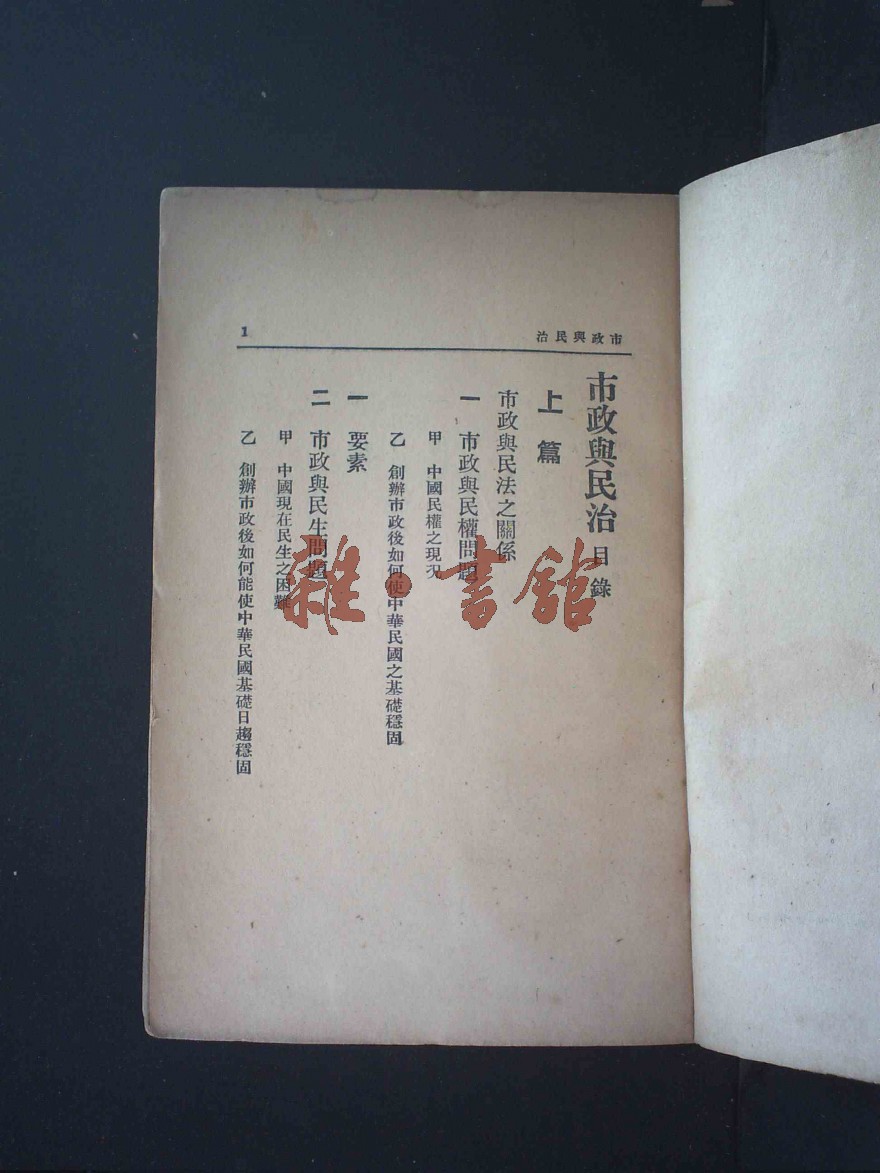 市政與民治
1
市政與民治 目錄
上篇
市政與民法之關係
一 市政與民權問題
甲 中國民權之現況
乙 創辦市政後如何使中華民國之基礎穩固
一 要素
二 市政與民生問題
甲 中國現在民生之困難
乙 創辦市政後如何能使中華民國基礎日趨穩固
雜·書館